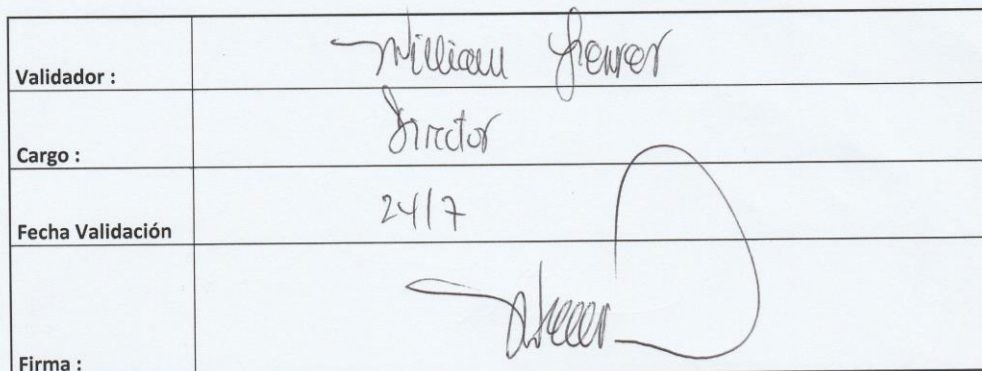 Validador : William
Cargo : Director
Fecha Validación 24/7
Firma :